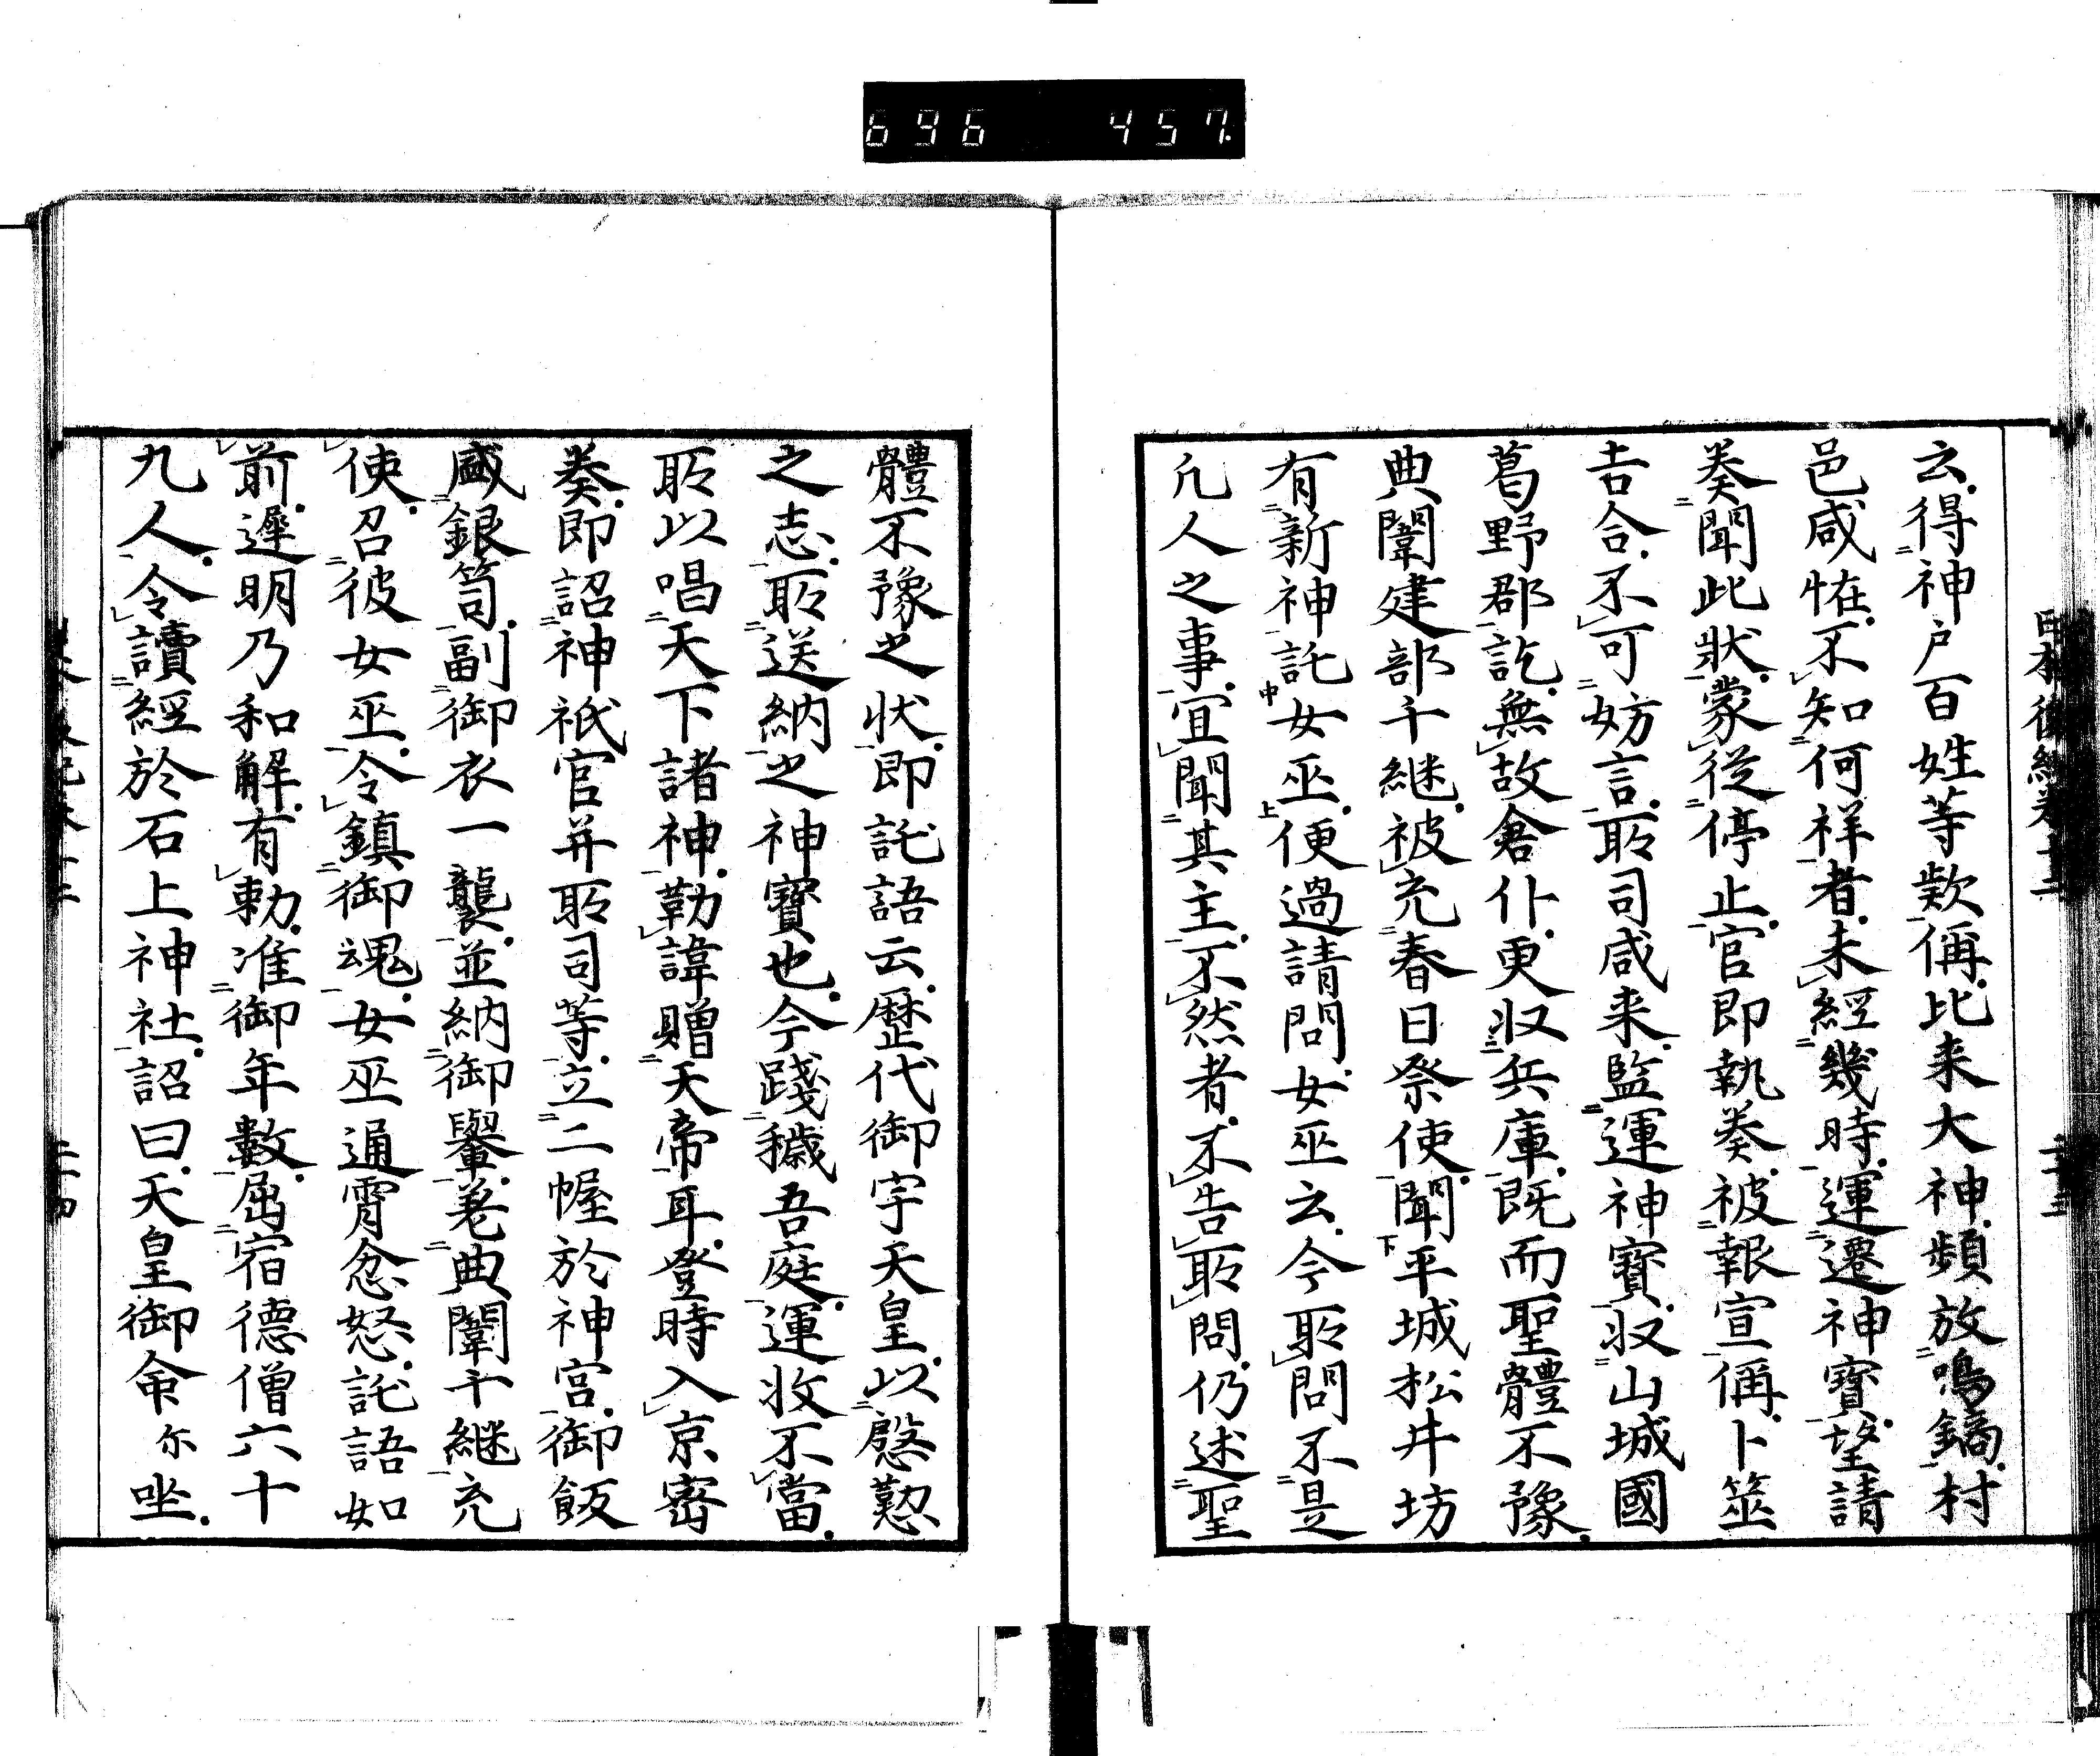 696 457
云得神戸百姓等款偁比来大神頻放鳴鏑村
邑咸恠不知何祥者未經幾時運遷神寶望請
奏聞此狀蒙從停止官即執奏被報宣偁卜筮
吉合不可妨言所司咸来監運神寶収山城國
葛野郡訖無故倉仆更収兵庫既而聖體不豫
典闈建部千継被充春日祭使聞平城松井坊
有新神託女巫便過請問女巫云今所問不是
凡人之事宜聞其主不然者不告所問仍述聖
體不豫之狀即託語云歴代御宇天皇以慇懃
之志所送納之神寶也今踐穢吾庭運收不當
所以唱天下諸神勒諱贈天帝耳登時入京密
奏即詔神祇官并所司等立二幄於神宮御飯
盛銀笥副御衣一襲並納御轝差典闈千継充
使召彼女巫令鎮御魂女巫通宵忿怒託語如
前遲明乃和解有勅准御年數屈宿德僧六十
九人令讀經於石上神社詔曰天皇御命尓坐